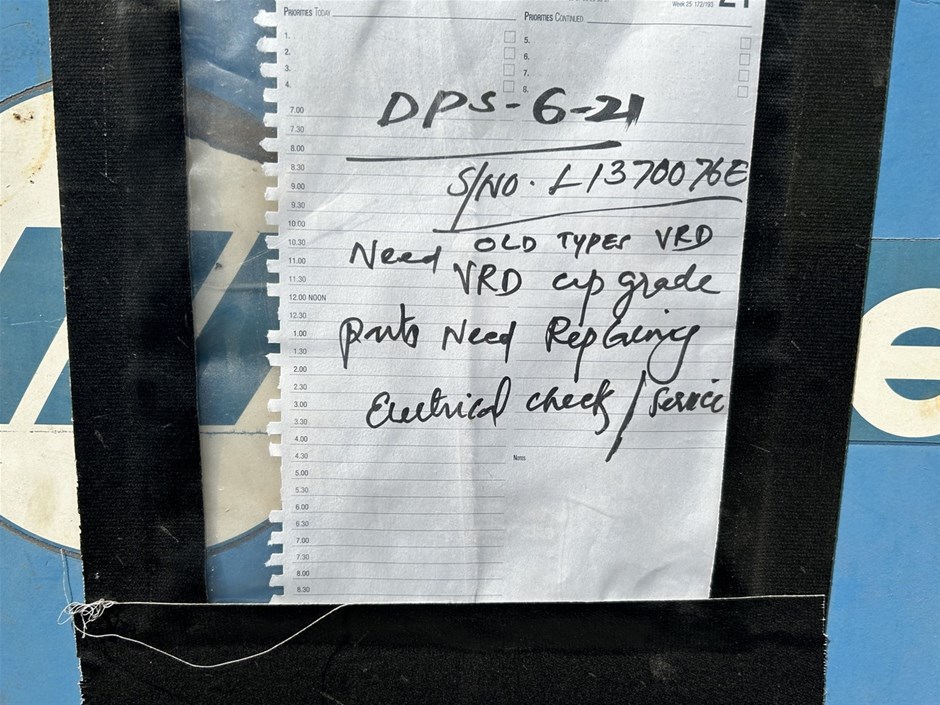 PRIORITIES TODAY
PRIORITIES CONTINUED
Week 25 172/193
21
1.
2.
3.
4.
5.
6.
7.
8.
7.00
7.30
8.00
8.30
9.00
9.30
10.00
10.30
11.00
11.30
12.00 NOON
12.30
1.00
1.30
2.00
2.30
3.00
3.30
4.00
4.30
5.00
5.30
6.00
6.30
7.00
7.30
8.00
8.30
DPS-6-21
S/NO. L1370076E
Need OLD TYPES VRD
VRD up grade
Parts Need Replacing
Electrical check / Service
Notes
e